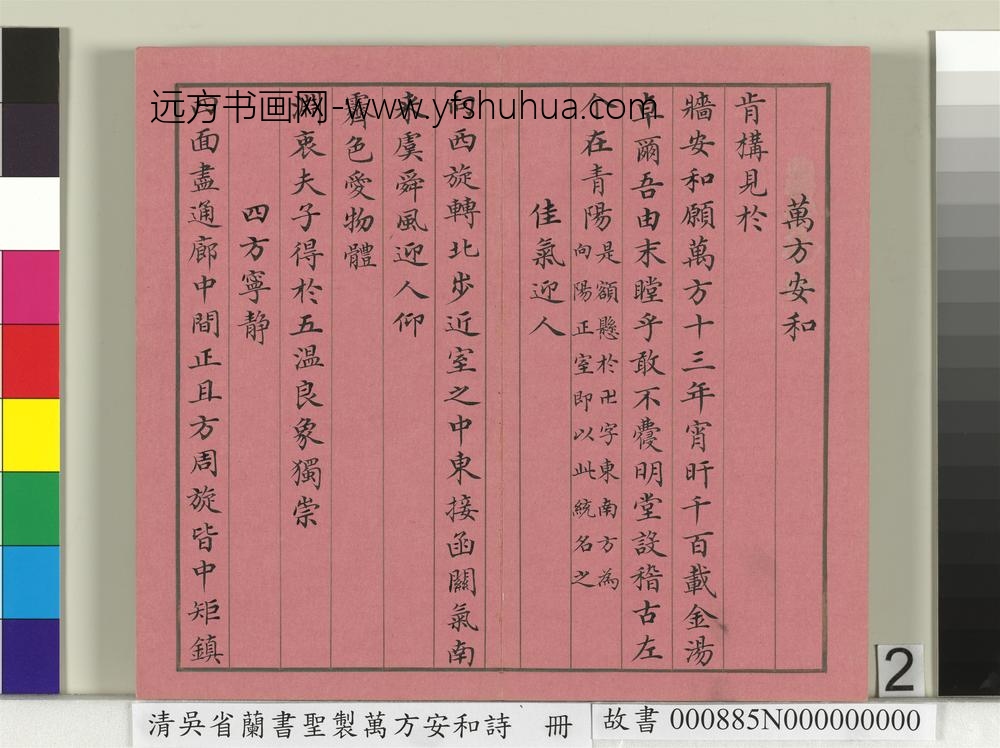 萬方安和
肯構見於
牆安和願萬方十三年宵旰千百載金湯
卓爾吾由末瞠乎敢不虔明堂設稽古左
个在青陽是額懸於卍字東南方為
向陽正室即以此統名之
佳氣迎人
西旋轉北步近室之中東接函關氣南
來虞舜風迎人仰
霽色愛物體
淵衷夫子得於五溫良象獨崇
四方寧静
四面盡通廊中間正且方周旋皆中矩鎮
远方书画网-www.yfshuhua.com
2
清吳省蘭書聖製萬方安和詩 冊
故書 000885N000000000